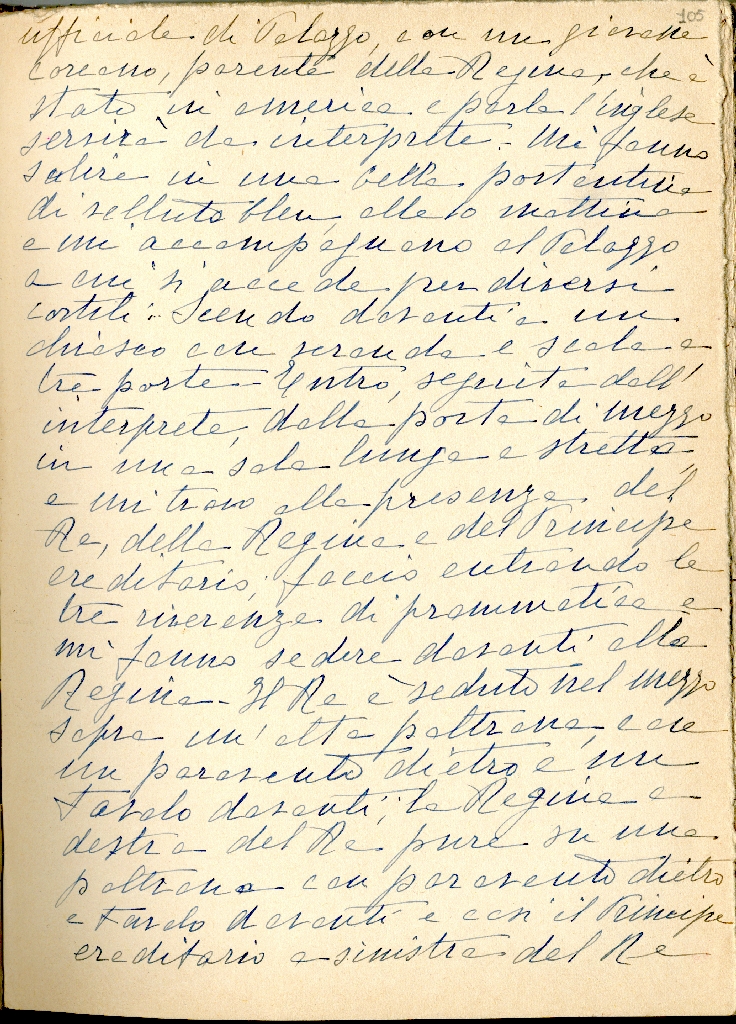 105
ufficiale di Palazzo, con un giovane
coreano, parente della Regina, che è
stato in america e parla l'inglese
servirà da interprete - Mi fanno
salire in una bella portantina
di velluto bleu, alle 10 mattina
e mi accompagnano al Palazzo
a cui si accede per diversi
cortili. Scendo davanti a un
chiosco con veranda e scala a
tre porte - Entro, seguita dall'
interprete, dalla porta di mezzo
in una sala lunga e stretta,
e mi trovo alla presenza del
Re, della Regina e del Principe
ereditario; faccio entrando le
tre riverenze di prammatica e
mi fanno sedere davanti alla
Regina - Il Re è seduto nel mezzo
sopra un'alta poltrona, con
un paravento dietro e un
tavolo davanti; la Regina a
destra del Re pure su una
poltrona con paravento dietro
e tavolo davanti e così il Principe
ereditario a sinistra del Re